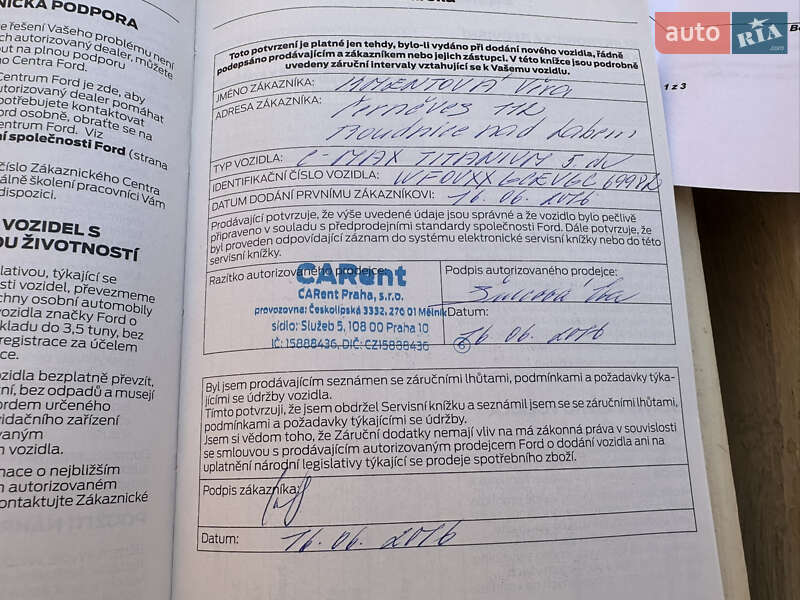 NICKÁ PODPORA
e řešení Vašeho problému není
ch autorizovaný dealer, můžete
out na plnou podporu
ho Centra Ford.
Centrum Ford je zde, aby
autorizovaný dealer pomáhat
potřebujete kontaktovat
Ford osobně, obraťte se na
entrum Ford. Viz
ní společnosti Ford (strana
číslo Zákaznického Centra
álně školení pracovníci Vám
dispozici.
VOZIDEL S
OU ŽIVOTNOSTÍ
slativou, týkající se
sti vozidel, převezmeme
chny osobní automobily
vozidla značky Ford o
kladu do 3,5 tuny, bez
registrace za účelem
ce.
zidla bezplatně převzít,
ní, bez odpadů a musejí
ordem určeného
vidačního zařízení
vaným
m vozidla.
mace o nejbližším
m autorizovaném
kontaktujte Zákaznické
Toto potvrzení je platné jen tehdy, bylo-li vydáno při dodání nového vozidla, řádně
podepsáno prodávajícím a zákazníkem nebo jejich zástupci. V této knížce jsou podrobně
uvedeny záruční intervaly vztahující se k Vašemu vozidlu.
JMÉNO ZÁKAZNÍKA:
ADRESA ZÁKAZNÍKA:
Roudnice nad Labem
TYP VOZIDLA: C-MAX TITANIUM 5.dv
IDENTIFIKAČNÍ ČÍSLO VOZIDLA:
DATUM DODÁNÍ PRVNÍMU ZÁKAZNÍKOVI: 16.06.2016
Prodávající potvrzuje, že výše uvedené údaje jsou správné a že vozidlo bylo pečlivě
připraveno v souladu s předprodejními standardy společnosti Ford. Dále potvrzuje, že
byl proveden odpovídající záznam do systému elektronické servisní knížky nebo do této
servisní knížky.
Razítko autorizovaného prodejce:
CARent
CARent Praha, s.r.o.
provozovna: Českolipská 3332, 276 01 Mělník
sídlo: Služeb 5, 108 00 Praha 10
IČ: 15888436, DIČ: CZ15888436
6
Podpis autorizovaného prodejce:
Datum:
16 06. 2016
Byl jsem prodávajícím seznámen se záručními lhůtami, podmínkami a požadavky týka-
jícími se údržby vozidla.
Tímto potvrzuji, že jsem obdržel Servisní knížku a seznámil jsem se se záručními lhůtami,
podmínkami a požadavky týkajícími se údržby.
Jsem si vědom toho, že Záruční dodatky nemají vliv na má zákonná práva v souvislosti
se smlouvou s prodávajícím autorizovaným prodejcem Ford o dodání vozidla ani na
uplatnění národní legislativy týkající se prodeje spotřebního zboží.
Podpis zákazníka:
Datum: 16. 06. 2016
1 z 3
auto RIA .com